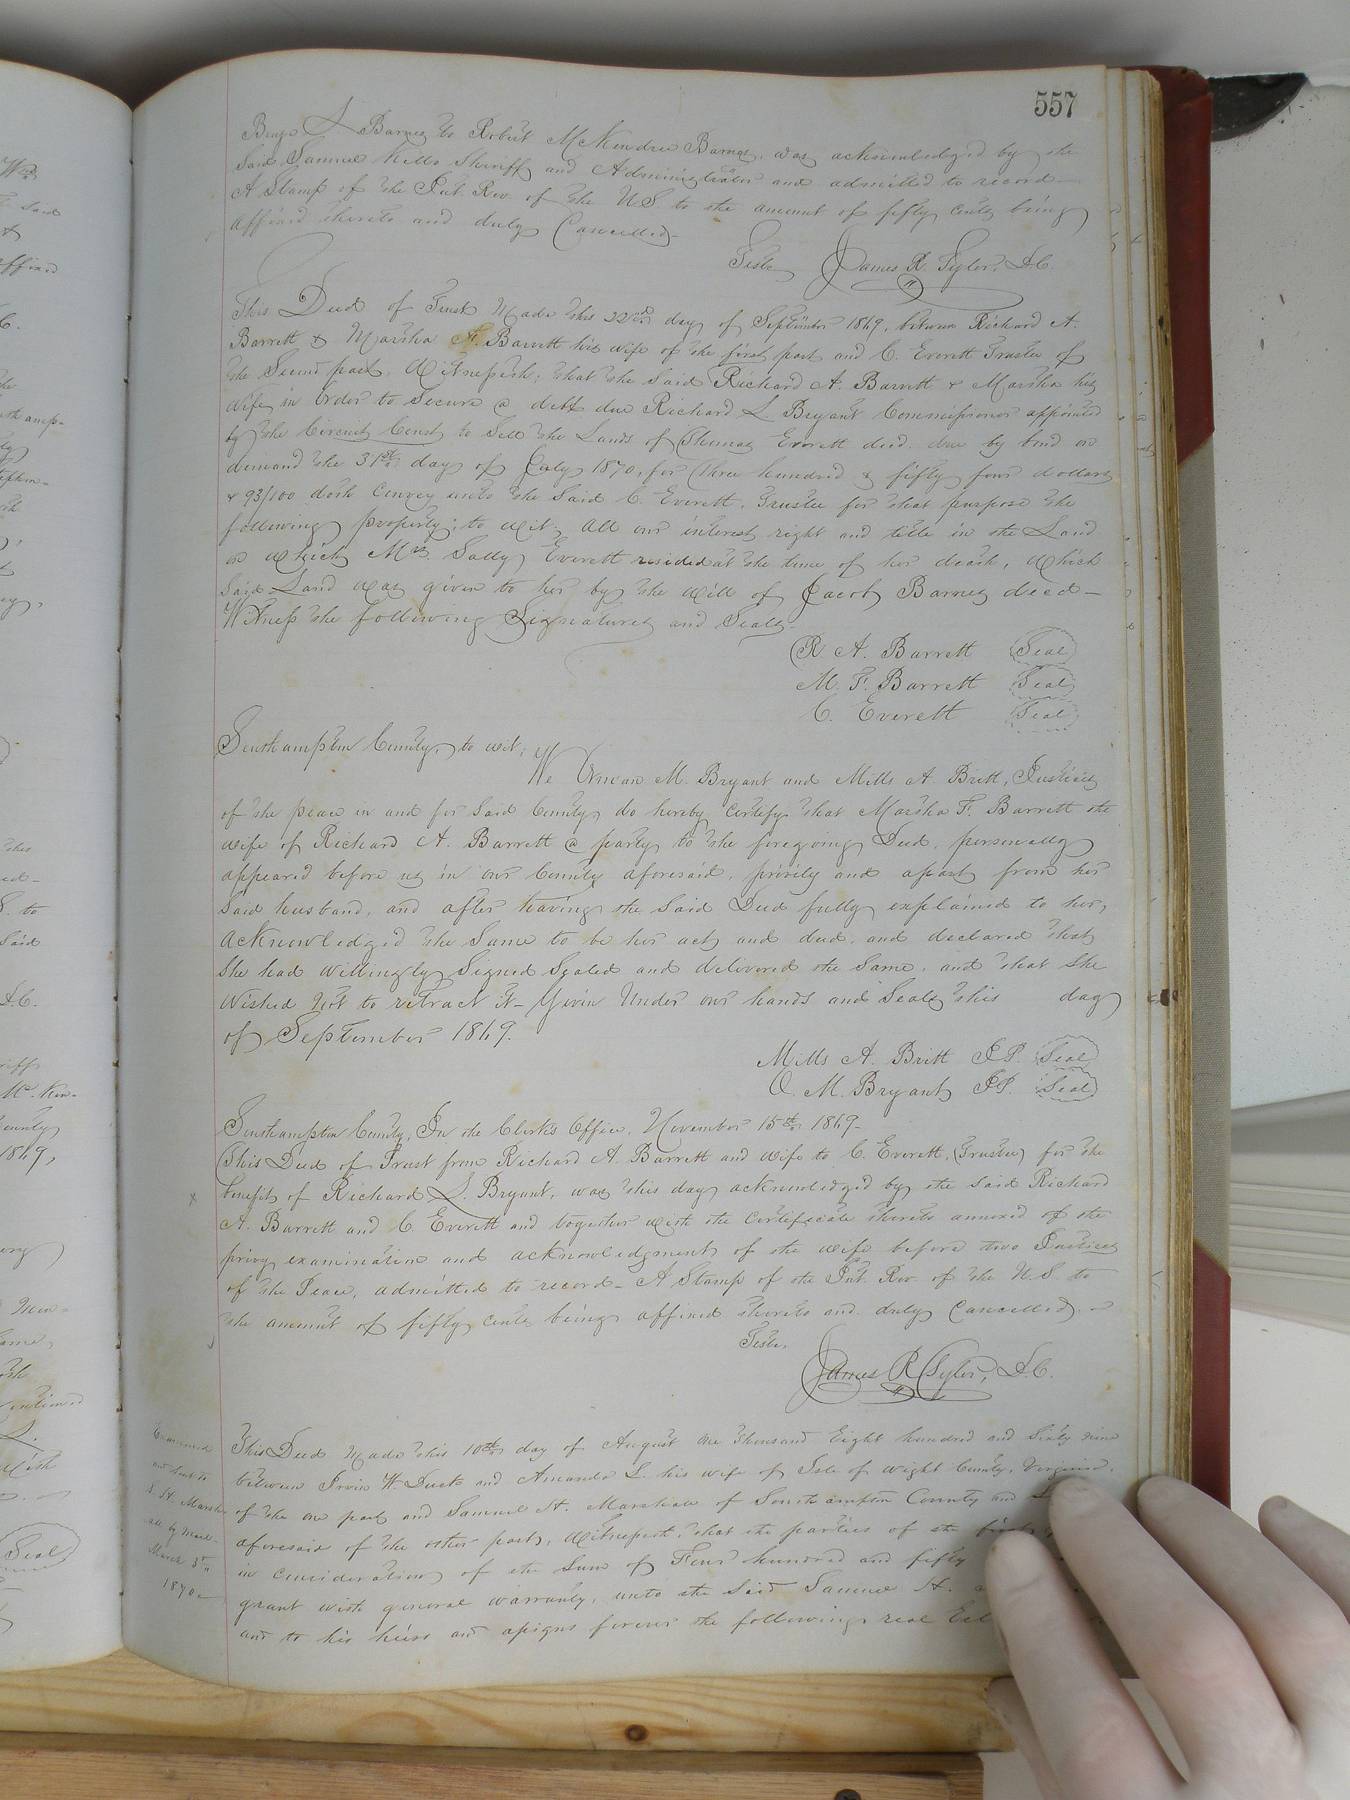 557
Benj. J. Barnes to Robert McKendree Barnes, was acknowledged by the
Said Samuel Kello Sheriff and Administrator and admitted to record—
A Stamp of the Int. Rev. of the U.S. to the amount of fifty cents being
affixed thereto and duly Cancelled—
Teste James R. Tyler, D.C.
This Deed of Trust Made this 22nd day of September 1869, between Richard A.
Barrett & Martha F. Barrett his wife of the first part and C. Everett Trustee of
the Second part, Witnesseth; that the Said Richard A. Barrett & Martha his
wife in order to Secure a debt due Richard L. Bryant Commissioner appointed
by the Circuit Court to Sell the Lands of Thomas Everett decd. due by bond on
demand the 31st day of July 1870, for three hundred & fifty four dollars
& 93/100 doth Convey unto the Said C. Everett, Trustee for that purpose the
following property; to wit; All our interest right and title in the Land
on which Mrs. Sally Everett resided at the time of her death, which
Said Land was given to her by the will of Jacob Barnes decd—
Witness the following Signatures and Seals—
R. A. Barrett Seal
M. F. Barrett Seal
C. Everett Seal
Southampton County, to wit;
We M. Bryant and Mills A. Britt, Justices
of the peace in and for Said County, do hereby Certify that Martha F. Barrett the
wife of Richard A. Barrett a party to the foregoing Deed, personally
appeared before us in our County aforesaid, privily and apart from her
Said husband, and after having the Said Deed fully explained to her,
acknowledged the Same to be her act and deed, and declared that
She had willingly Signed Sealed and delivered the Same, and that She
wished not to retract it— Given Under our hands and Seals this day
of September 1869.
Mills A. Britt J.P. Seal
O. M. Bryant J.P. Seal
Southampton County, In the Clerk's Office, November 15th 1869—
This Deed of Trust from Richard A. Barrett and wife to C. Everett, (Trustee) for the
benefit of Richard L. Bryant, was this day acknowledged by the said Richard
A. Barrett and C. Everett and together with the Certificate thereto annexed of the
privy examination and acknowledgment of the wife before two Justices
of the Peace, admitted to record— A Stamp of the Int. Rev. of the U.S. to
the amount of fifty cents being affixed thereto and duly Cancelled.
Teste,
James R. Tyler, D.C.
Examined
and Sent to
S. H. Marsh-
all by Mail—
March 3rd
1870—
This Deed Made this 10th day of August One Thousand Eight hundred and Sixty nine
between Irvin W. Duck and Amanda L. his wife of Isle of Wight County, Virginia,
of the one part and Samuel H. Marshall of Southampton County and
aforesaid of the other part, Witnesseth, that the parties of the first
in consideration of the Sum of Four hundred and fifty
grant with general warranty, unto the Said Samuel H.
and to his heirs and assigns forever the following real